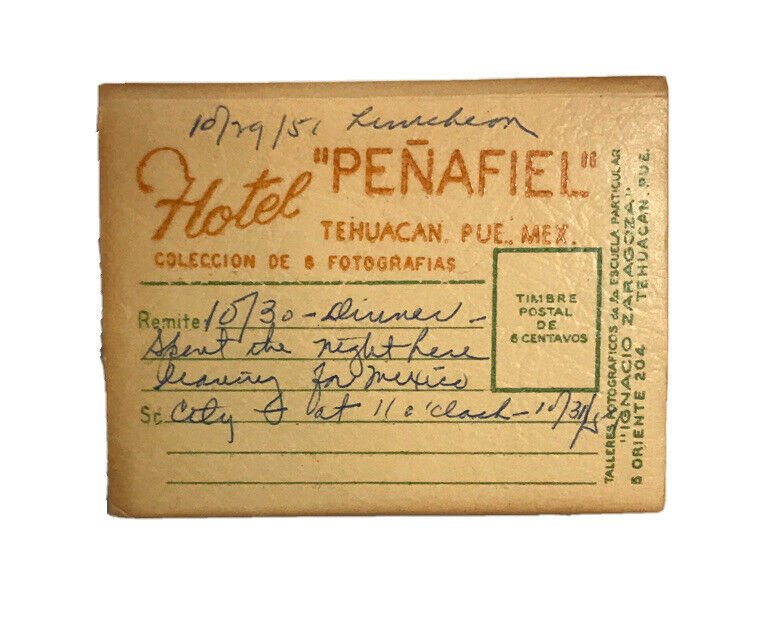 10/29/51 Luncheon
Hotel "PEÑAFIEL"
TEHUACAN. PUE., MEX.
COLECCION DE 6 FOTOGRAFIAS
TIMBRE
POSTAL
DE
6 CENTAVOS
Remite 10/30 - Dinner -
Spent the night here
leaving for Mexico
Sr. City at 11 o'clock - 10/31/51
TALLERES FOTOGRAFICOS de la ESCUELA PARTICULAR
"IGNACIO ZARAGOZA"
5 ORIENTE 204 TEHUACAN. PUE.